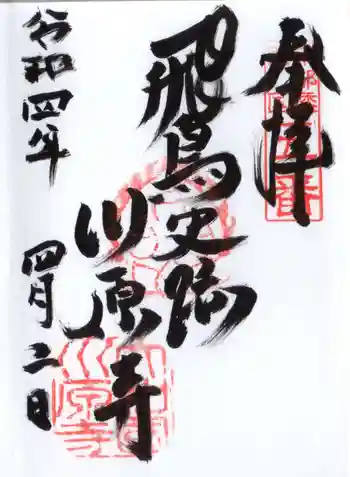 奉拝
飛鳥史跡
川原寺
令和四年 四月二日